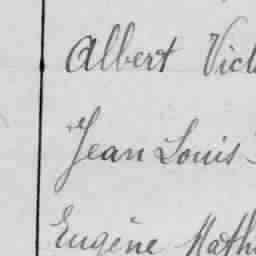 Albert Vict
Jean Louis
Eugène Math